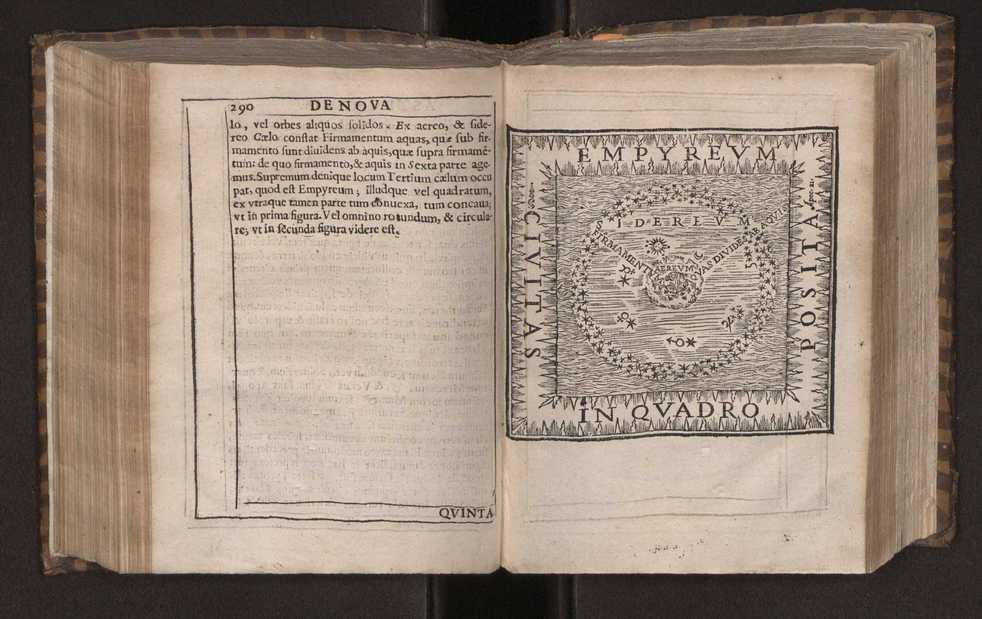 290 DE NOVA
lo, vel orbes aliquos solidos. Ex aereo, & side-
reo Cælo constat Firmamentum aquas, quæ sub fir-
namento sunt diuidens ab aquis, quæ supra firmamē-
tum: de quo firmamento, & aquis in Sexta parte age-
mus. Supremum denique locum Tertium cælum occu
pat, quod est Empyreum; illudque vel quadratum,
ex vtraque tamen parte tum cōnuexa, tum concaua;
vt in prima figura. Vel omnino rotundum, & circula-
re; vt in secunda figura videre est.
QVINTA
EMPYREVM
CIVITAS
POSITA
Apoc. 21.
IN QVADRO
SIDEREVM
FIRMAMENTV
AEREVM
AQVAS DIVIDE
AB AQVIS